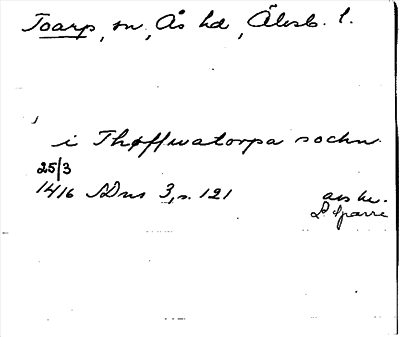 Toarp, sn, Ås hd, Älvsb. l.
i Thøffwatorpa sochn
25/3
1416 SDns 3, s. 121 avskr.
L Sparre